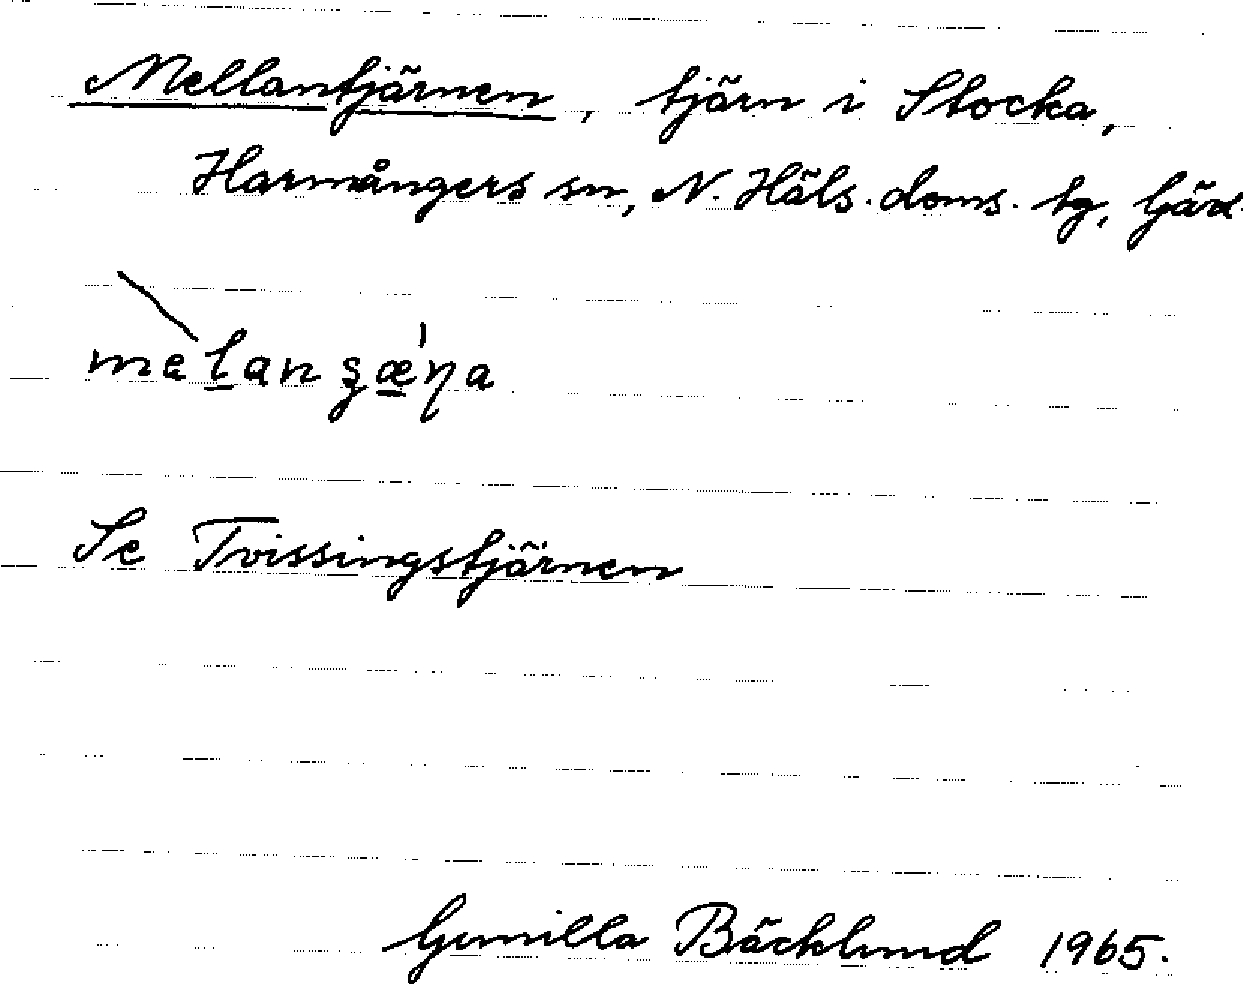 Mellantjärnen, tjärn i Stocka,
Harmångers sn, N. Häls. doms. tg, Gäxl
melanʂæ̀ɳa
Se Tvissingstjärnen
Gunilla Bäcklund 1965.